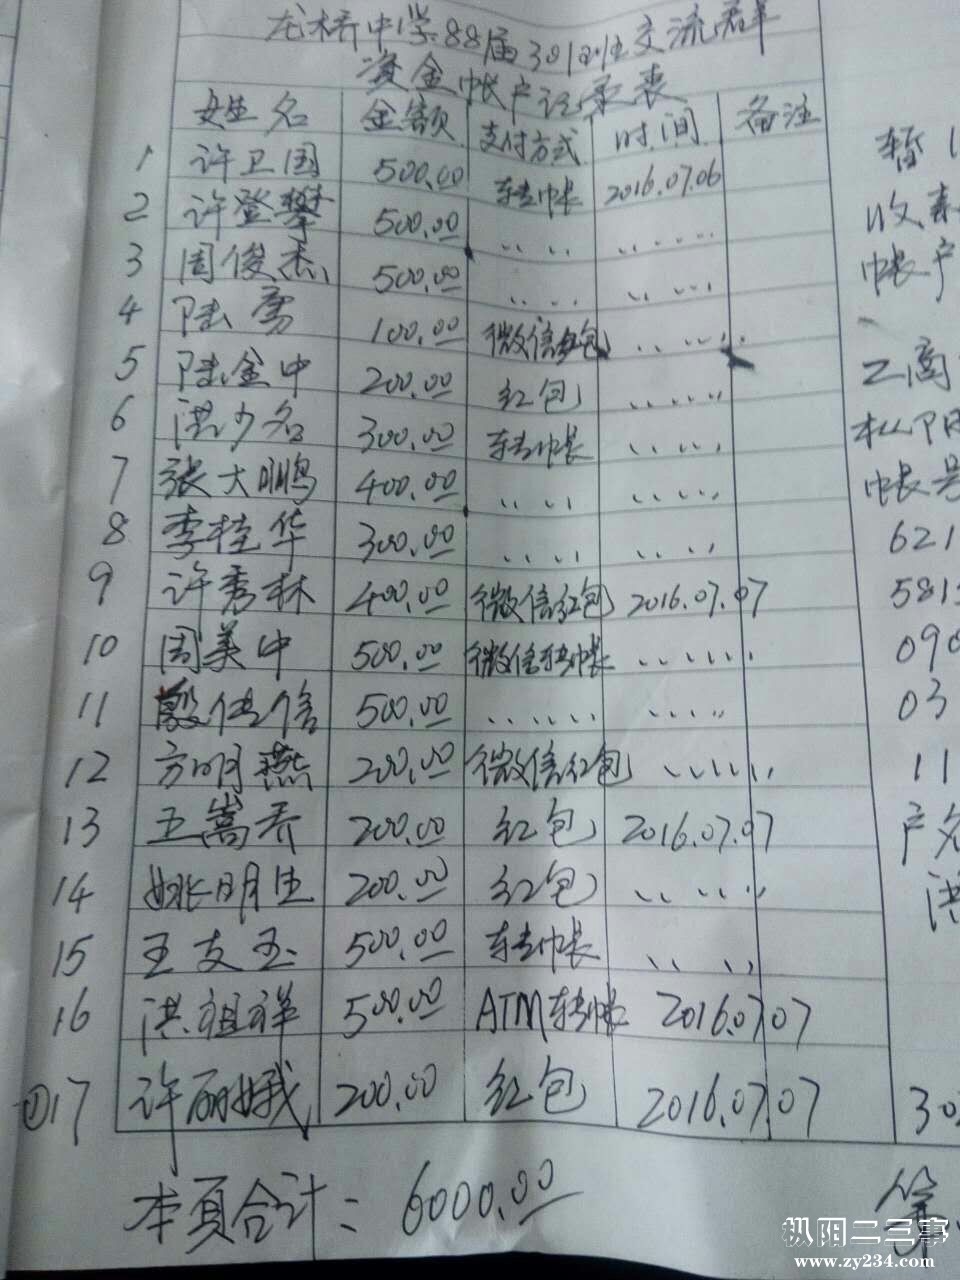 龙桥中学88届301班交流群
资金帐户记录表
姓名 金额 支付方式 时间 备注
1 许卫国 500.00 转帐 2016.07.06
2 许登攀 500.00 〃 〃 〃 〃
3 周俊杰 500.00 〃 〃 〃 〃
4 陆勇 100.00 微信红包 〃 〃 〃
5 陆金中 200.00 红包 〃 〃 〃
6 洪少名 300.00 转帐 〃 〃
7 张大鹏 400.00 〃 〃 〃 〃
8 李桂华 300.00 〃 〃 〃 〃
9 许秀林 400.00 微信红包 2016.07.07
10 周美中 500.00 微信转帐 〃 〃 〃
11 殷使信 500.00 〃 〃 〃 〃 〃
12 方明燕 200.00 微信红包 〃 〃 〃
13 王嵩乔 200.00 红包 2016.07.07
14 姚明生 200.00 红包 〃 〃 〃
15 王支玉 500.00 转帐 〃 〃
16 洪祖祥 500.00 ATM转帐 2016.07.07
①17 许丽娥 200.00 红包 2016.07.07
本页合计: 6000.00
暂
收
帐户
工商
枞阳
帐号
621
581
090
03
11
户名
洪
30
第
枞阳二三事
www.zy234.com